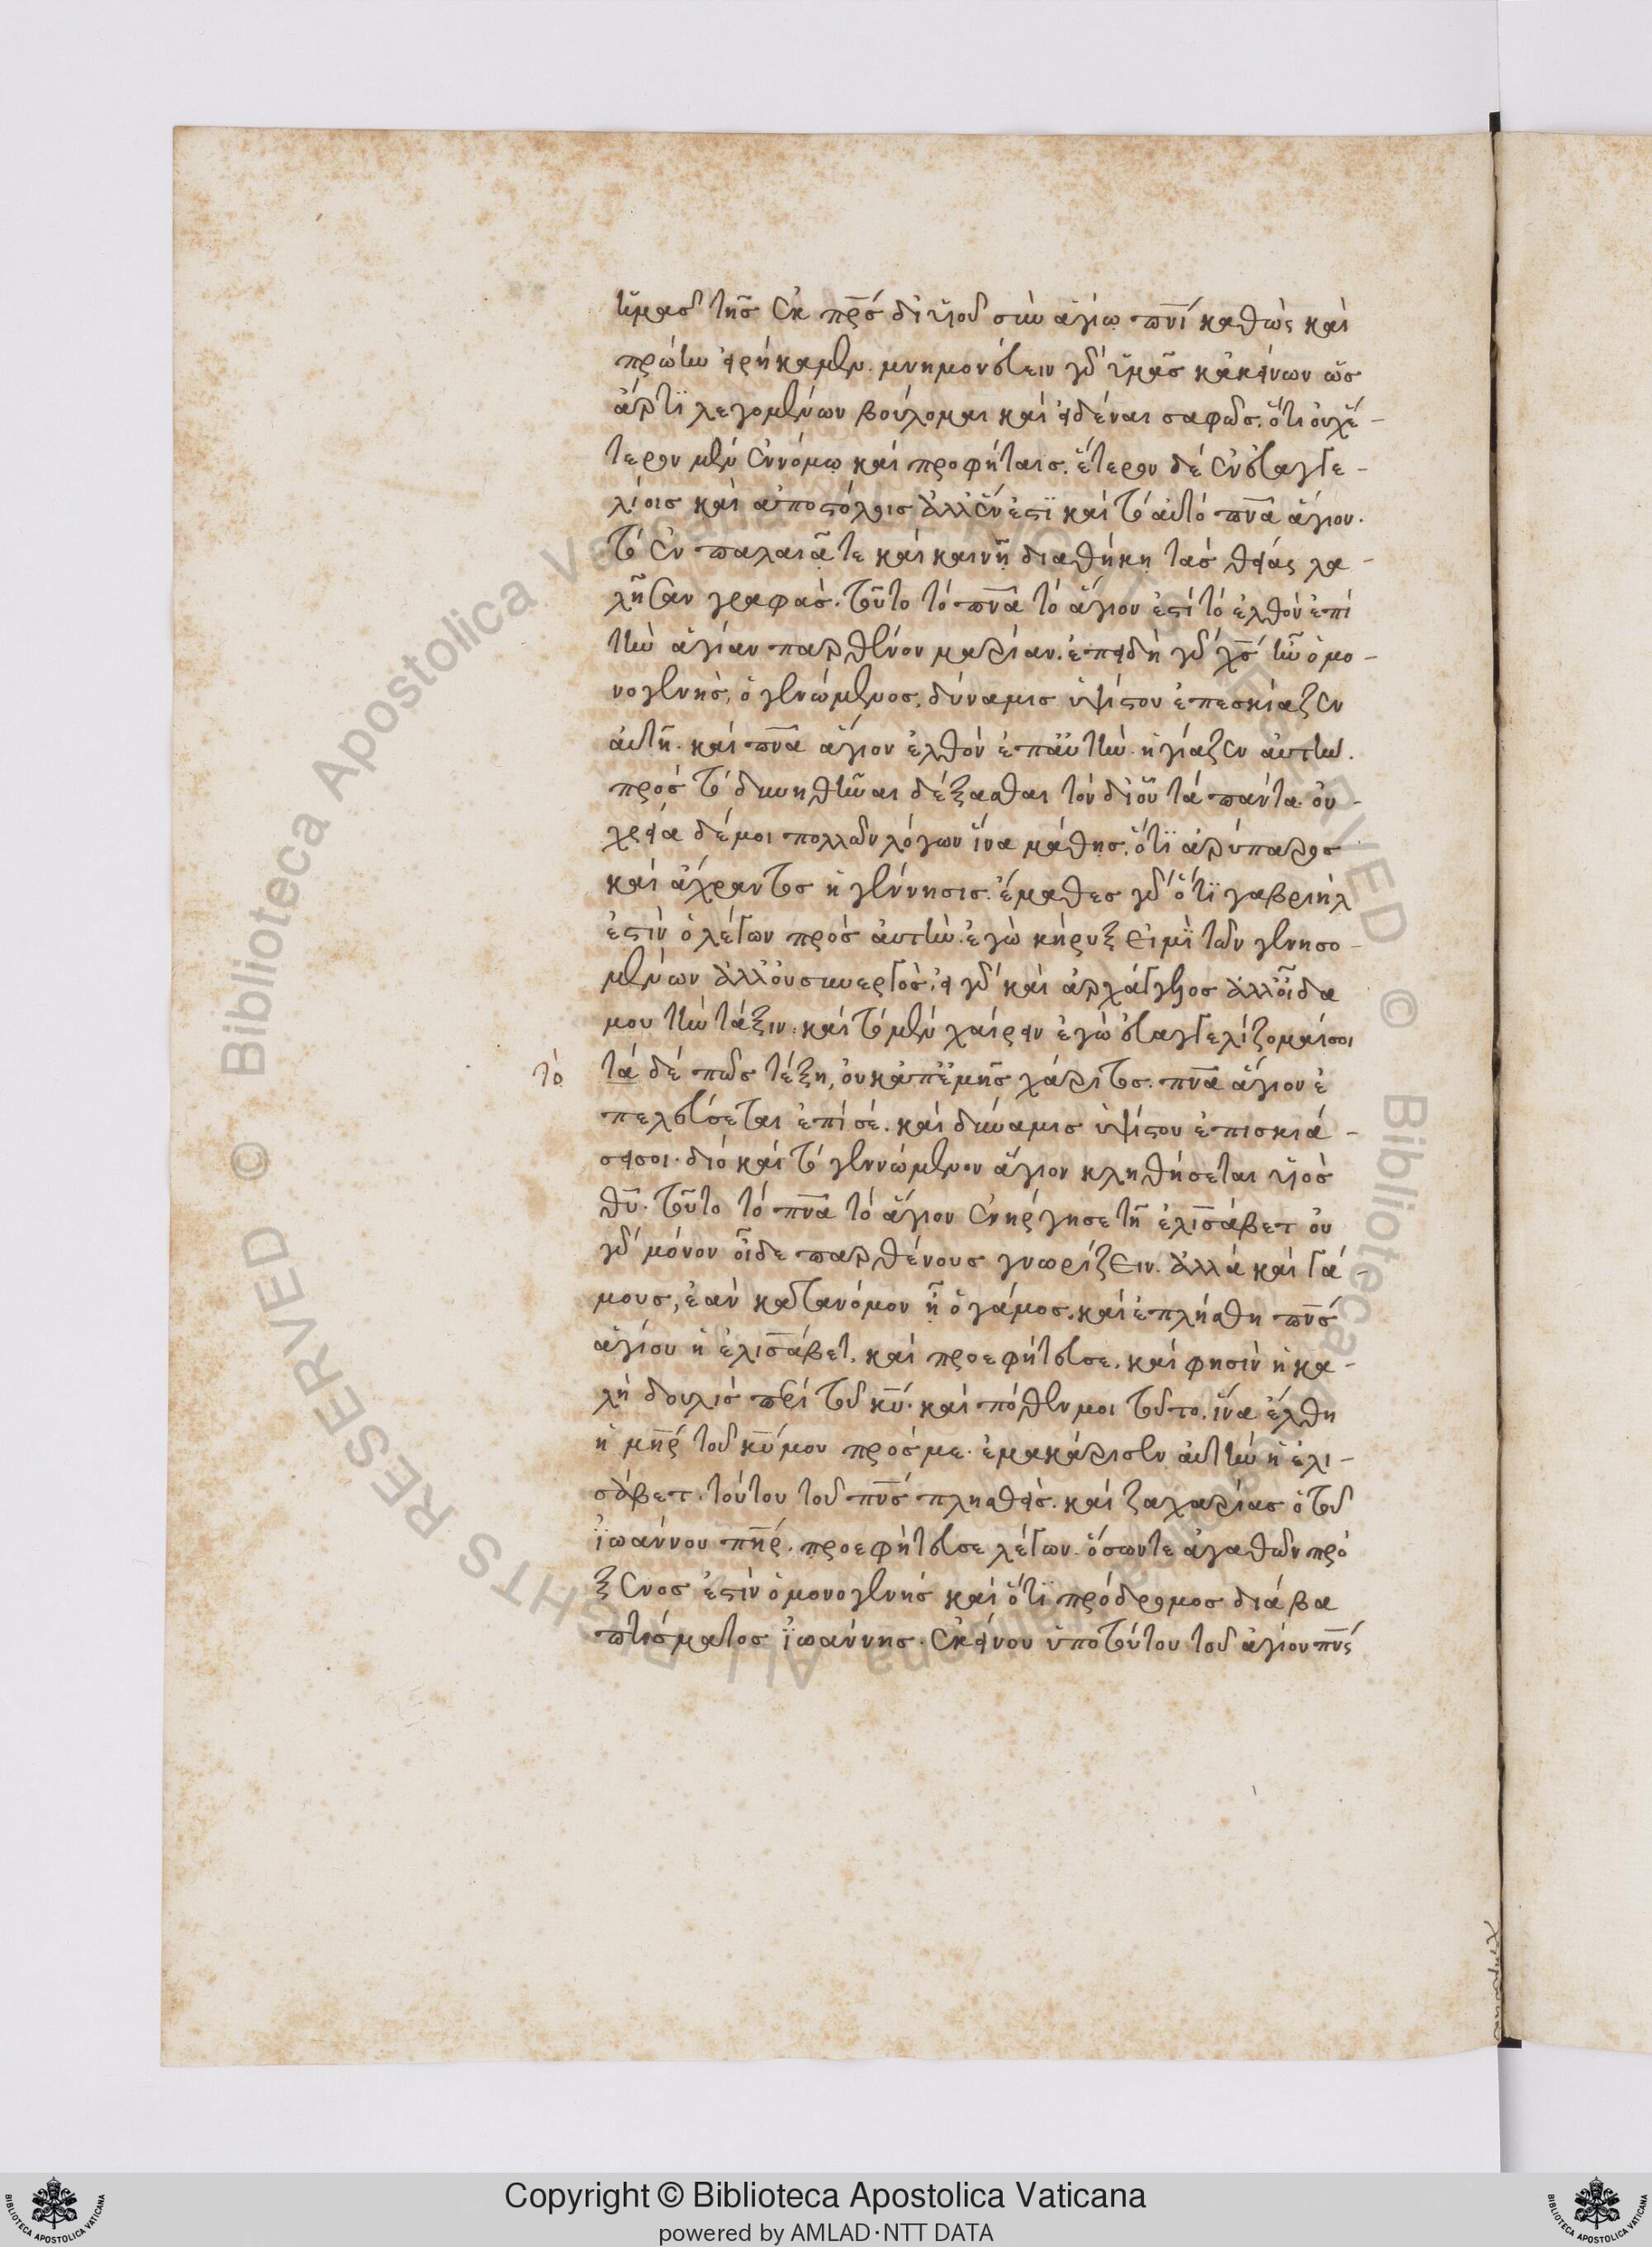 ἡμᾶς τῆς ἐκ πρ̅ς δι' υἱοῦ σὺν ἁγίω πν̅ι καθὼς καὶ
πρώτην εἰρήκαμεν. μνημονεύειν γὰρ ὑμᾶς κἀκείνων ὡς
ἄρτϊ λεγομένων βούλομαι καὶ εἰδέναι σαφῶς. ὅτι οὐχ ἕ-
τερον μὲν ἐν νόμῳ καὶ προφήταις. ἕτερον δὲ ἐν εὐαγγε-
λίοις καὶ ἀποστόλοις ἀλλ' ἕν ἐστϊ καὶ τὸ αὐτὸ πν̅α ἅγιον.
τὸ ἐν παλαιᾷ τε καὶ καινῇ διαθήκῃ τὰς θείας λα-
λῆσαν γραφὰς. τοῦτο τὸ πν̅α τὸ ἅγιον ἐστὶ τὸ ἐλθὸν ἐπὶ
τὴν ἁγίαν παρθένον μαρίαν. ἐπειδὴ γὰρ χ̅ς ἦν ὁ μο-
νογενὴς, ὁ γενώμενος, δύναμις ὑψίστου ἐπεσκίαζεν
αὐτῇ. καὶ πν̅α ἅγιον ἐλθὸν ἐπ' αὐτὴν. ἡγίαζεν αὐτὴν.
πρὸς τὸ δυνηθῆναι δέξασθαι τὸν δι' οὗ τὰ πάντα. οὐ
χρεία δέ μοι πολλῶν λόγων ἵνα μάθῃς. ὅτϊ ἀρύπαρος
καὶ ἄχραντος ἡ γέννησις. ἔμαθες γὰρ ὅτϊ γαβριὴλ
ἐστὶν ὁ λέγων πρὸς αὐτὴν. ἐγὼ κήρυξ εἰμῒ τῶν γενησο-
μένων ἀλλ' οὐ συνεργὸς. εἰ γὰρ καὶ ἀρχάγγελος ἀλλ' οἶδα
μου τὴν τάξιν. καὶ τὸ μὲν χαίρειν ἐγὼ εὐαγγελίζομαί σοι
τὸ
τὰ δὲ πῶς τέξη, οὐκ ἀπ' ἐμῆς χάριτος. πν̅α ἅγιον ἐ
πελεύσεται ἐπὶ σέ. καὶ δύναμις ὑψίστου ἐπισκιά-
σει σοι. διὸ καὶ τὸ γεννώμενον ἅγιον κληθήσεται υἱὸς
θ̅υ. τοῦτο τὸ πν̅α τὸ ἅγιον ἐνήργησε τῇ ἐλισάβετ οὐ
γὰρ μόνον οἶδε παρθένους γνωρίζειν. ἀλλὰ καὶ γά
μους, ἐὰν κατὰ νόμον ᾖ ὁ γάμος. καὶ ἐπλήσθη πν̅ς
ἁγίου ἡ ἐλισάβετ. καὶ προεφήτευσε. καὶ φησὶν ἡ κα-
λὴ δουλὶς περὶ τοῦ κ̅υ. καὶ πόθεν μοι τοῦτο. ἵνα ἔλθη
ἡ μη̅ρ τοῦ κ̅υ μου πρός με. ἐμακάρισεν αὐτὴν ἡ ἐλι-
σάβετ. τούτου τοῦ πν̅ς πλησθεὶς. καὶ ζαχαρίας ὁ τοῦ
ἰωάννου πη̅ρ. προεφήτευσε λέγων. ὅσων τε ἀγαθῶν πρό
ξενος ἐστὶν ὁ μονογενὴς καὶ ὅτϊ πρόδρομος διὰ βα
πτίσματος ἰωάννης. ἐκείνου ὑπὸ τούτου τοῦ ἁγίου πν̅ς